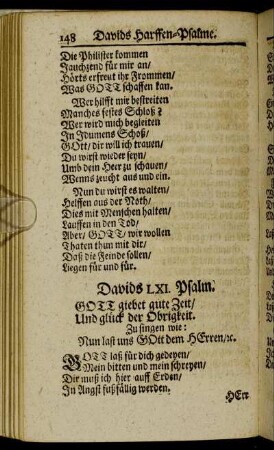 148 Davids Harffen-Psalme.
Die Philister kommen
Jauchzend für mir an/
Hörts erfreut ihr Frommen/
Was GOTT schaffen kan.
Wer hilfft mir bestreiten
Manches festes Schloß?
Wer wird mich begleiten
In Idumens Schoß/
GOtt/ dir will ich trauen/
Du wirst wieder seyn/
Umb dein Heer zu schauen/
Wenns zeucht aus und ein.
Nun du wirst es walten/
Helffen aus der Noth/
Dies mit Menschen halten/
Lauffen in den Tod/
Aber/ GOTT/ wir wollen
Thaten thun mit dir/
Daß die Feinde sollen/
Liegen für und für.
Davids LXI. Psalm.
GOTT giebet gute Zeit/
Und glück der Obrigkeit.
Zu singen wie:
Nun last uns GOtt dem HErren/ꝛc.
GOTT laß für dich gedeyen/
Mein bitten und mein schreyen/
Dir muß ich hier auff Erden/
In Angst fußfällig werden.
HErr